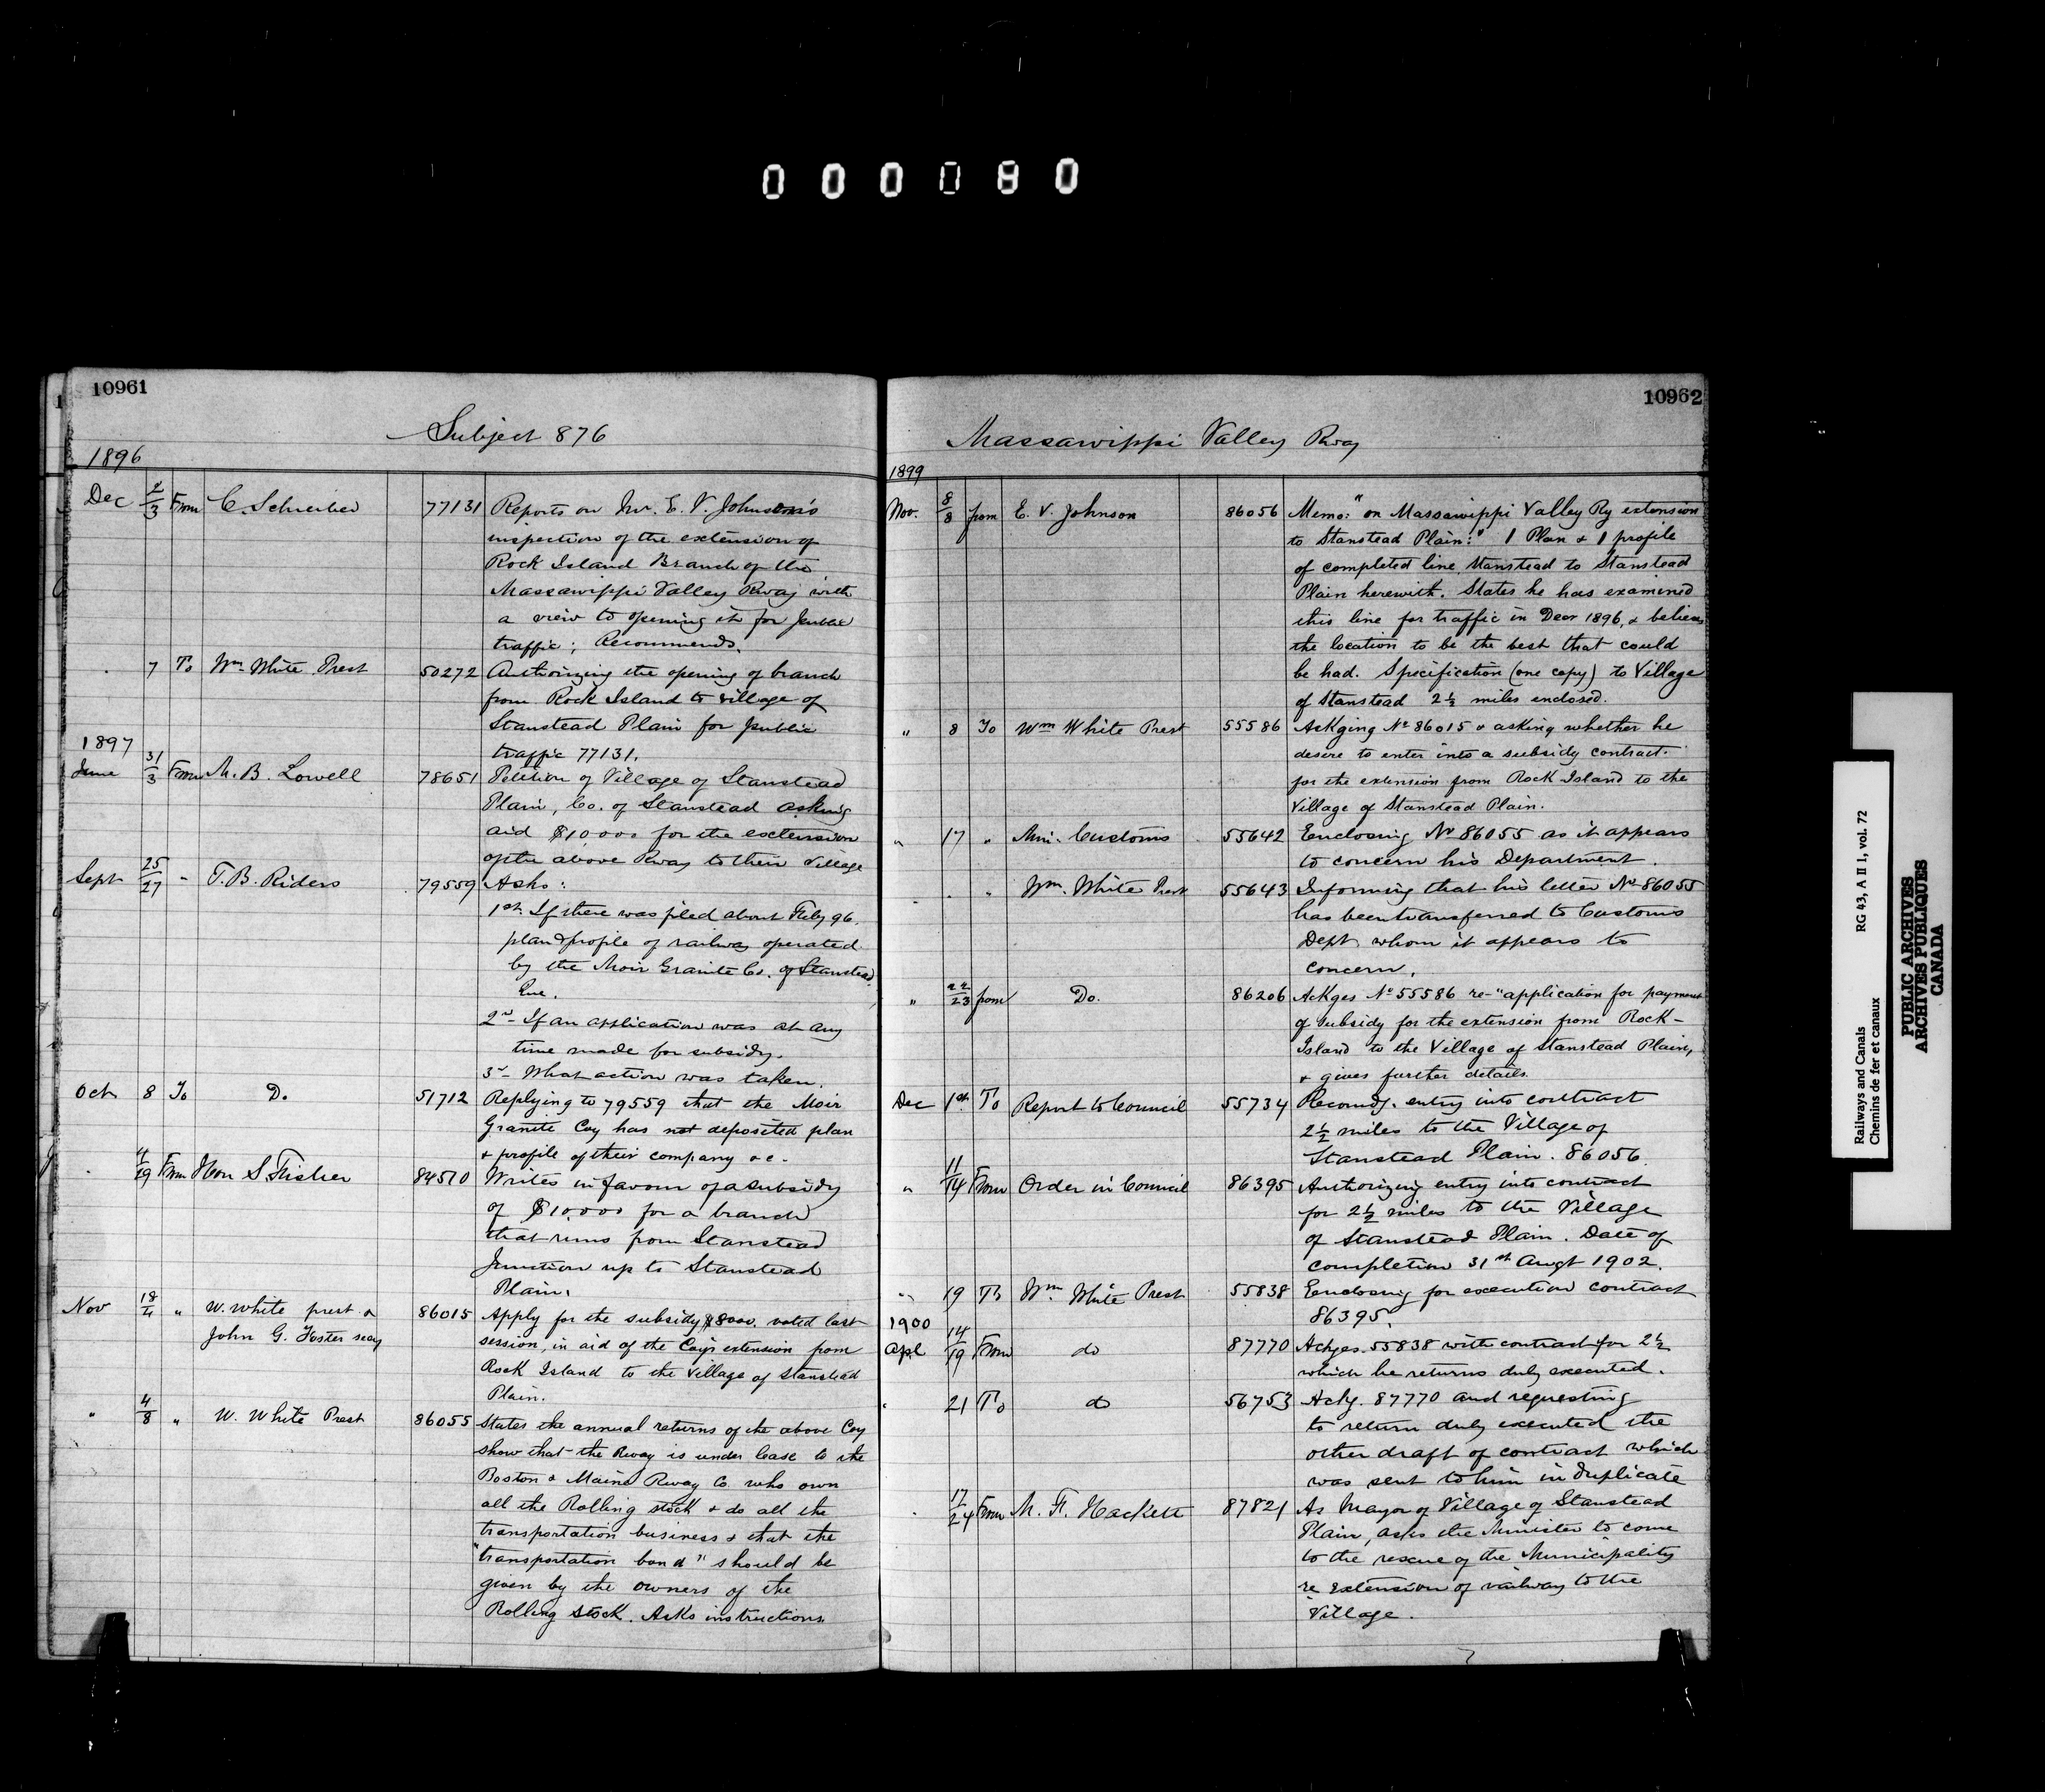 000080
10961
Subject 876
1896
Dec 2/3 From C. Schreiber 77131 Reports on Mr. E. V. Johnson's
inspection of the extension of
Rock Island Branch of the
Massawippi Valley Rway with
a view to opening it for public
traffic; Recommends.
" 7 To Wm White Prest 50272 Authorizing the opening of branch
from Rock Island to village of
Stanstead Plain for public
traffic 77131.
1897
June 31/3 From M. B. Lowell 78651 Petition of Village of Stanstead
Plain, Co. of Stanstead asking
aid $10,000 for the extension
of the above Rway to their village
Sept 25/27 " T. B. Riders 79559 Asks:
1st If there was filed about Feby 96
plan & profile of railway operated
by the Moir Granite Co. of Stanstead
Que.
2nd If an application was at any
time made for subsidy.
3rd What action was taken.
Oct 8 To Do 51712 Replying to 79559 that the Moir
Granite Coy has not deposited plan
& profile of their company &c.
" 19 From Hon S. Fisher 84510 Writes in favour of a subsidy
of $10,000 for a branch
that runs from Stanstead
Junction up to Stanstead
Plain.
Nov " W. White prest &
John G. Foster secy 86015 Apply for the subsidy $8000. voted last
session, in aid of the Coy's extension from
Rock Island to the Village of Stanstead
Plain.
" 4/8 " W. White Prest 86055 States the annual returns of the above Coy
show that the Rway is under lease to the
Boston & Maine Rway Co. who own
all the Rolling stock & do all the
transportation business & that the
"transportation bond" should be
given by the owners of the
Rolling stock. Asks instructions.
10962
Massawippi Valley Rway
1899
Nov. 8/8 from E. V. Johnson 86056 Memo: "on Massawippi Valley Ry extension
to Stanstead Plain:" 1 Plan & 1 profile
of completed line, Stanstead to Stanstead
Plain herewith. States he has examined
this line for traffic in Decr 1896, & believes
the location to be the best that could
be had. Specification (one copy) to Village
of Stanstead 2½ miles enclosed.
" 8 To Wm White Prest 55586 Ackging No 86015 & asking whether he
desire to enter into a subsidy contract
for the extension from Rock Island to the
Village of Stanstead Plain.
" 17 " Min. Customs 55642 Enclosing No 86055 as it appears
to concern his Department.
" " Wm. White Prest 55643 Informing that his letter No 86055
has been transferred to Customs
Dept. whom it appears to
concern.
" 22/23 from Do. 86206 Ackges No 55586 re "application for payment
of subsidy for the extension from Rock-
Island to the Village of Stanstead Plain,
& gives further details.
Dec 1st To Report to Council 55734 Recomdg. entry into contract
2½ miles to the Village of
Stanstead Plain. 86056
" 11/14 From Order in Council 86395 Authorizing entry into contract
for 2½ miles to the Village
of Stanstead Plain. Date of
completion 31st Augt 1902.
" 19 To Wm White Prest 55838 Enclosing for execution contract
86395.
1900
Apl 14/19 From do 87770 Ackges. 55838 with contract for 2½
which he returns duly executed.
" 21 To do 56753 Ackg. 87770 and requesting
to return duly executed the
other draft of contract which
was sent to him in duplicate
" 17/24 From M. F. Hackett 87821 As Mayor of Village of Stanstead
Plain, asks the Minister to come
to the rescue of the Municipality
re extension of railway to the
Village.
Railways and Canals RG 43, A II 1, vol. 72
Chemins de fer et canaux
PUBLIC ARCHIVES
ARCHIVES PUBLIQUES
CANADA